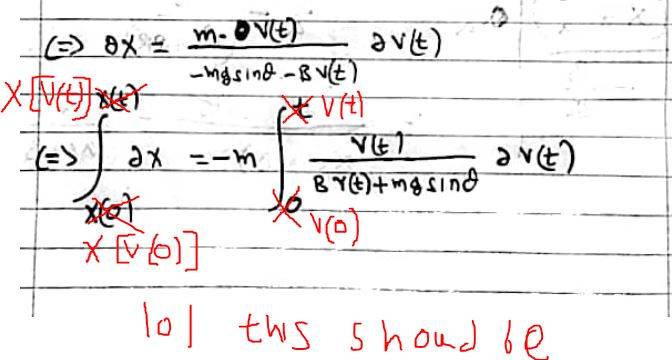 (=> ∂x = m·∂V(t) / -mg sinθ - B V(t) ∂V(t)
X[V(t)] x(t) t V(t)
(=> ∫ ∂x = -m ∫ V(t) / B V(t) + mg sinθ ∂V(t)
x(0) 0 V(0)
X[V(0)]
lol this shoud be